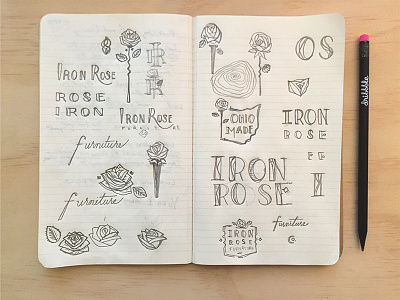 8
IR
IRON ROSE
R
ROSE
IRON
IRON ROSE
FURNITURE
furniture
furniture
OS
OHIO
MADE
IRON
ROSE
IRON
ROSE
I
IRON
ROSE
FURNITURE
furniture
Co.
dribbble